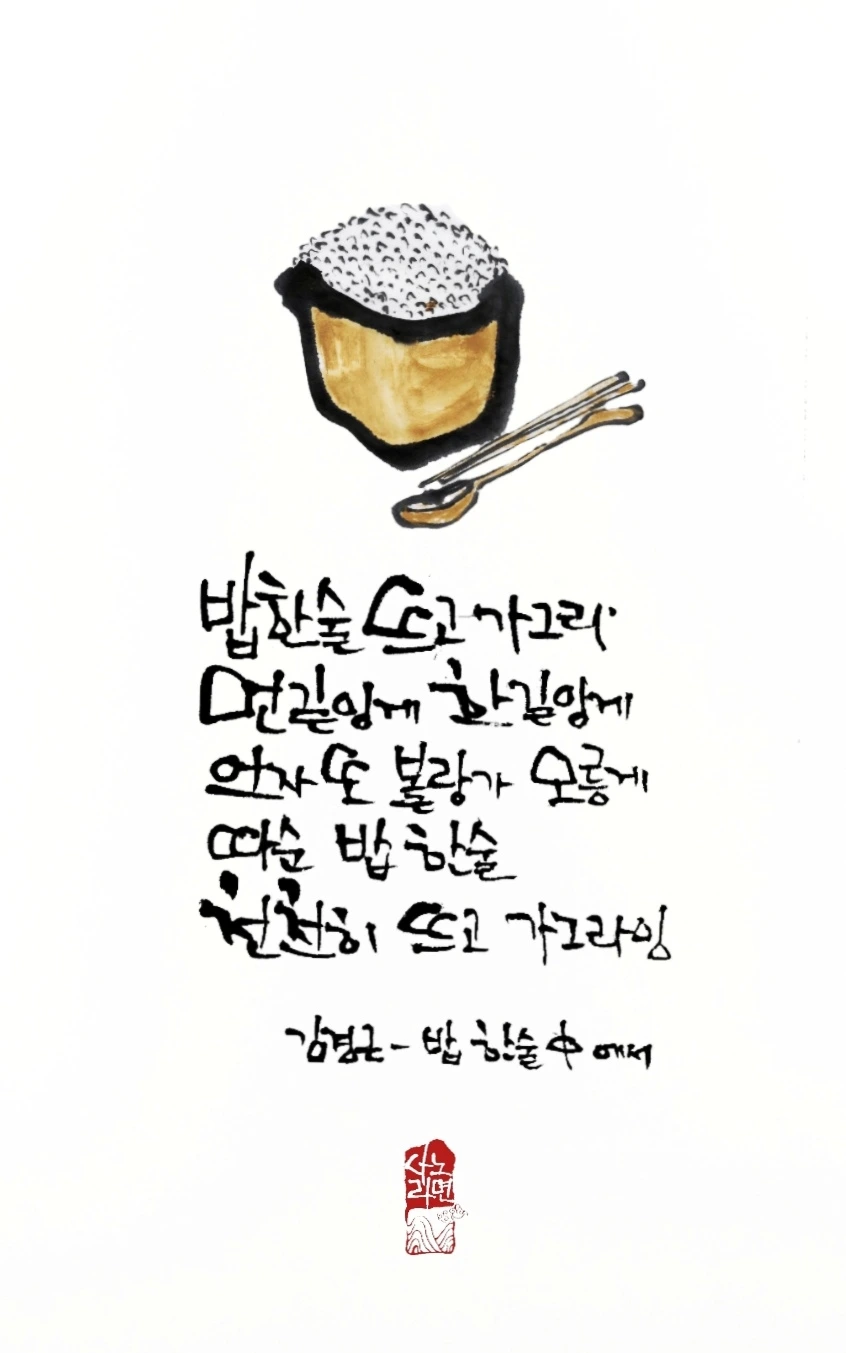 밥한술 뜨고 가그라
먼길잉게 한길잉게
언자 또 볼랑가 모릉게
따순 밥 한술
천천히 뜨고 가그라잉
김경근 - 밥 한술 中 에서
사노
라면